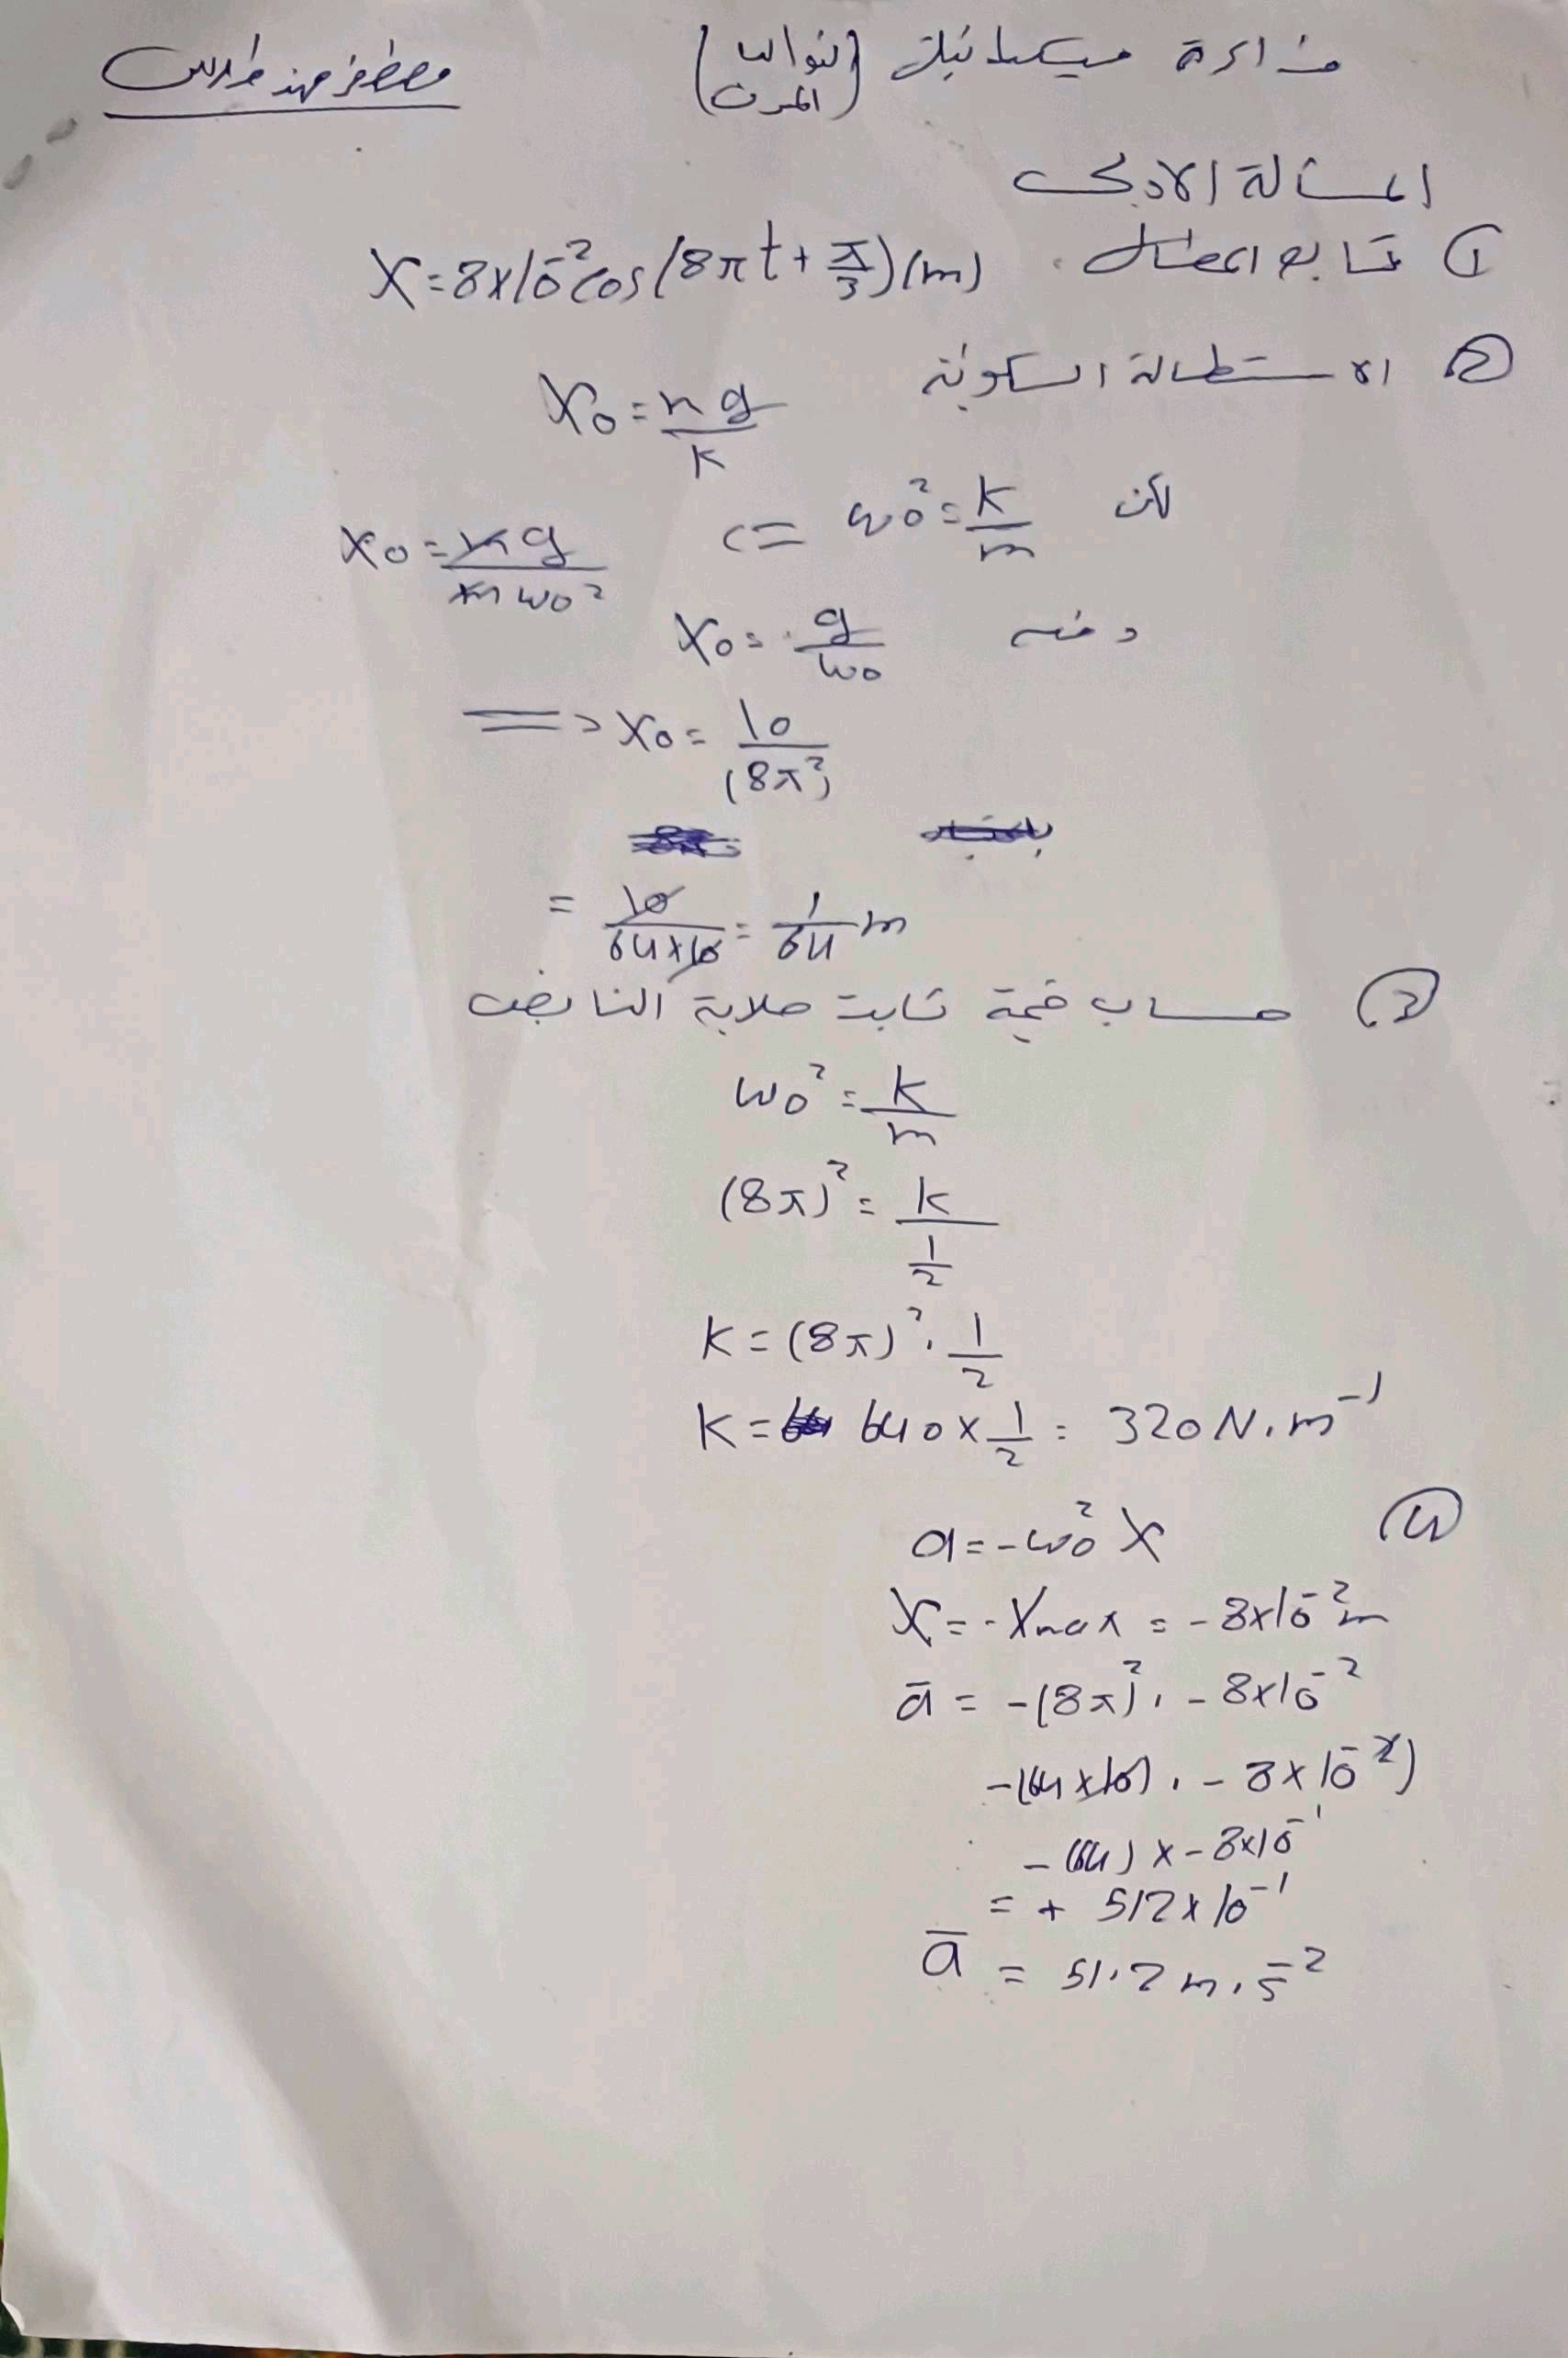 مذاكرة ميكانيك (النواس المرن) مصطفى مهند طرابلس
المسألة الأولى
① تابع المطال. X=8×10⁻²cos(8πt+π/3)(m)
② الاستطالة السكونية
X₀ = mg/K
لكن ω₀² = K/m => X₀ = mg/mω₀²
ومنه X₀ = g/ω₀
=> X₀ = 10/(8π²)
= 10/64×10 = 1/64 m
③ حساب قيمة ثابت صلابة النابض
ω₀² = K/m
(8π)² = K/(1/2)
K = (8π)² . 1/2
K = 640 × 1/2 = 320 N.m⁻¹
④ a = -ω₀² X
X = -Xmax = -8×10⁻² m
ā = -(8π)² . -8×10⁻²
-(64×10) . -8×10⁻²)
-(64) × -8×10⁻¹
= + 512×10⁻¹
ā = 51.2 m.s⁻²